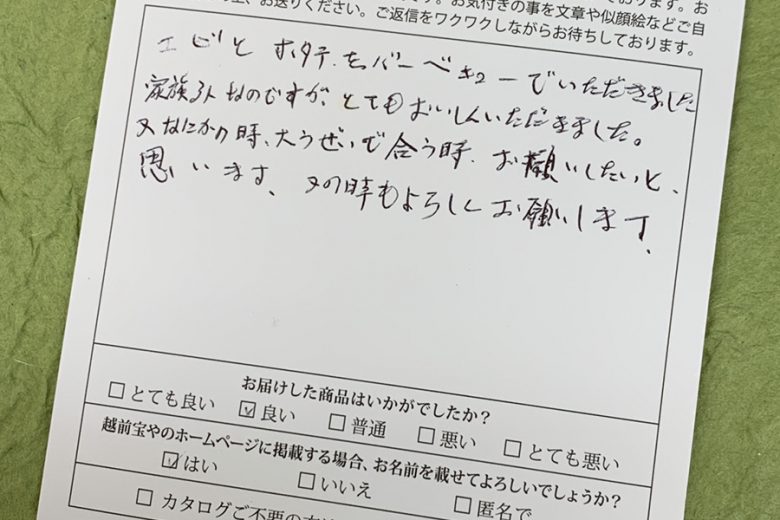 お送りください。ご返信をワクワクしながらお待ちしております。
お気付きの事を文章や似顔絵などご自
エビとホタテをバーベキューでいただきました
家族3人なのですが、とてもおいしくいただきました。
又なにかの時、大うぜいで合う時、お願いしたいと、
思います、又の時もよろしくお願いします、
お届けした商品はいかがでしたか?
□とても良い ☑良い □普通 □悪い □とても悪い
越前宝やのホームページに掲載する場合、お名前を載せてよろしいでしょうか?
☑はい □いいえ □匿名で
□カタログご不要の